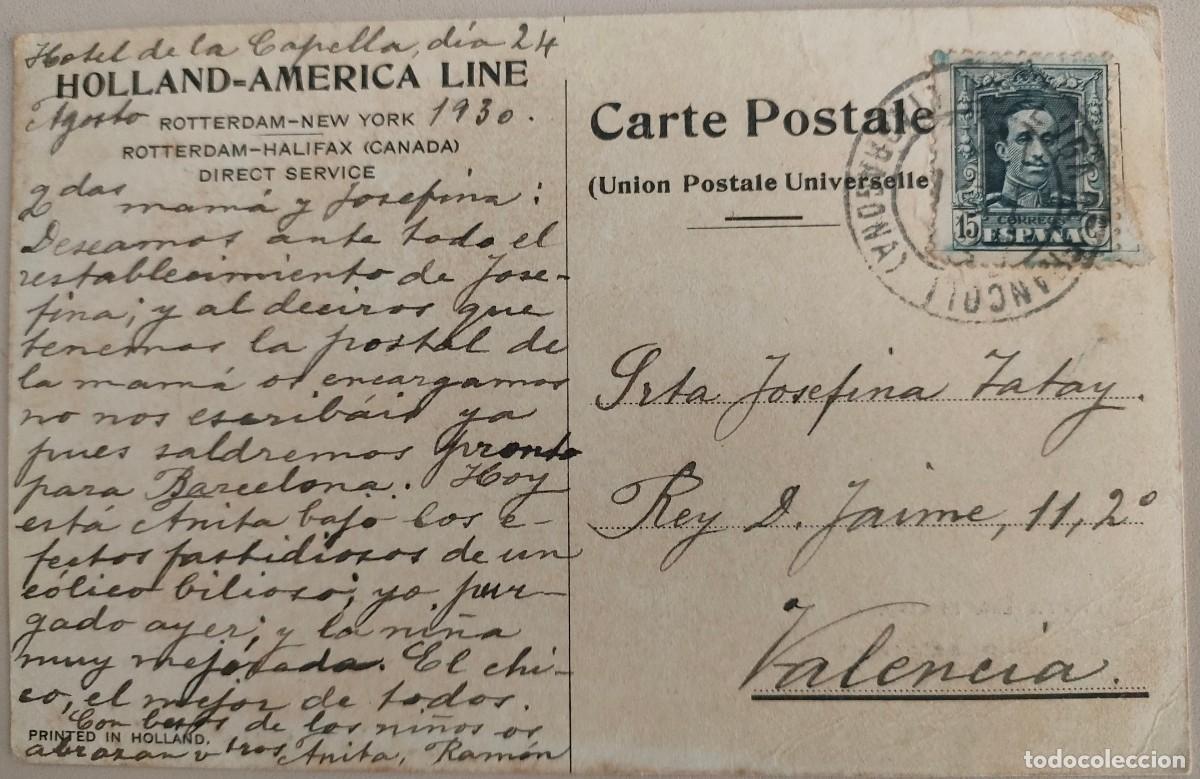 Hotel de la Capella, día 24
HOLLAND=AMERICA LINE
Agosto ROTTERDAM-NEW YORK 1930.
ROTTERDAM-HALIFAX (CANADA)
DIRECT SERVICE
Qdas mamá y Josefina:
Deseamos ante todo el
restablecimiento de Jose-
fina; y al deciros que
tenemos la postal de
la mamá os encargamos
no nos escribáis ya
pues saldremos pronto
para Barcelona. Hoy
está Anita bajo los e-
fectos fastidiosos de un
cólico bilioso; yo, pur-
gado ayer; y la niña
muy mejorada. El chi-
co, el mejor de todos.
Con besos de los niños os
PRINTED IN HOLLAND.
abrazan vtros Anita, Ramón
Carte Postale
(Union Postale Universelle)
15 CORREOS Cs
ESPAÑA
(TARRAGONA)
Srta Josefina Tatay.
Rey D. Jaime, 11, 2º
Valencia.
todocoleccion